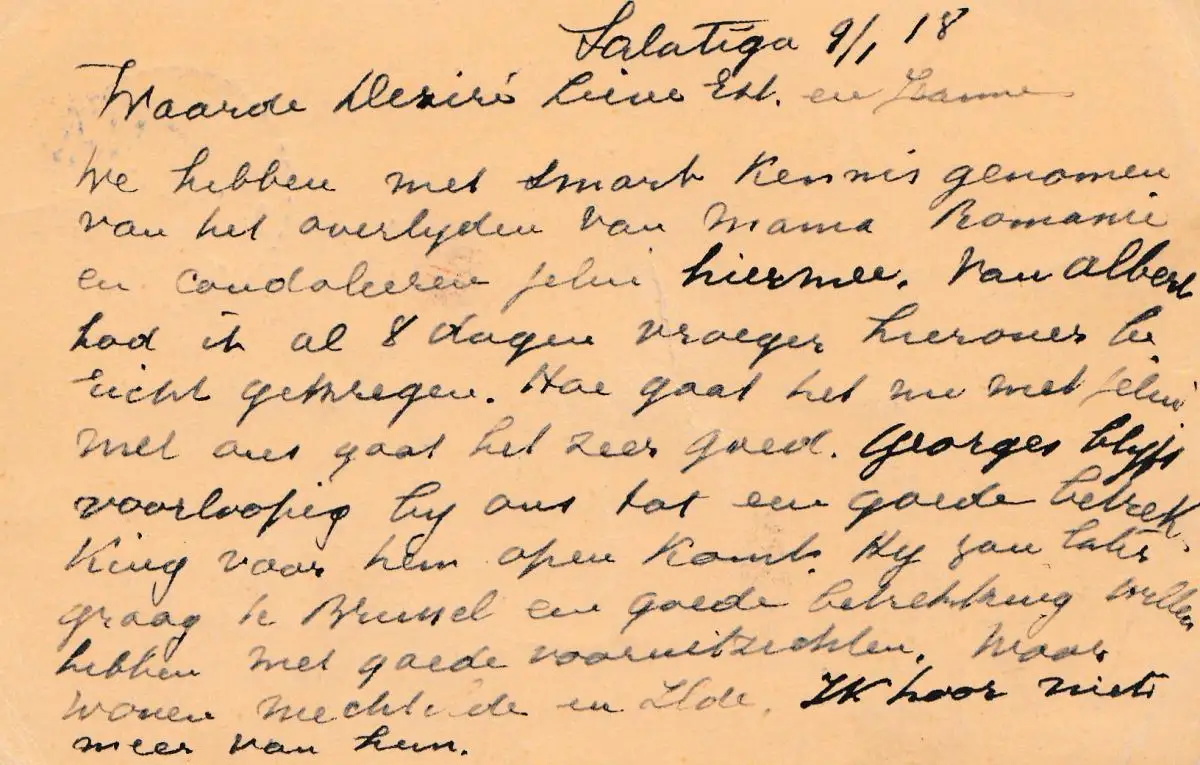 Salatiga 9/1 18
Waarde Desiré Lieve Est. en
We hebben met smart Kennis genomen
van het overlyden van Mama Romanie
en condoleeren jelui hiermee. Van Albert
had ik al 8 dagen vroeger hierover be
richt gekregen. Hoe gaat het nu met jelui
met ons gaat het zeer goed. Georges blyft
voorloopig by ons tot een goede betrek
King voor hem open Komt. Hy zou later
graag te Brussel een goede betrekking willen
hebben met goede vooruitzichten. Waar
wonen Mechtilde en Ilde. IK hoor niets
meer van hun.